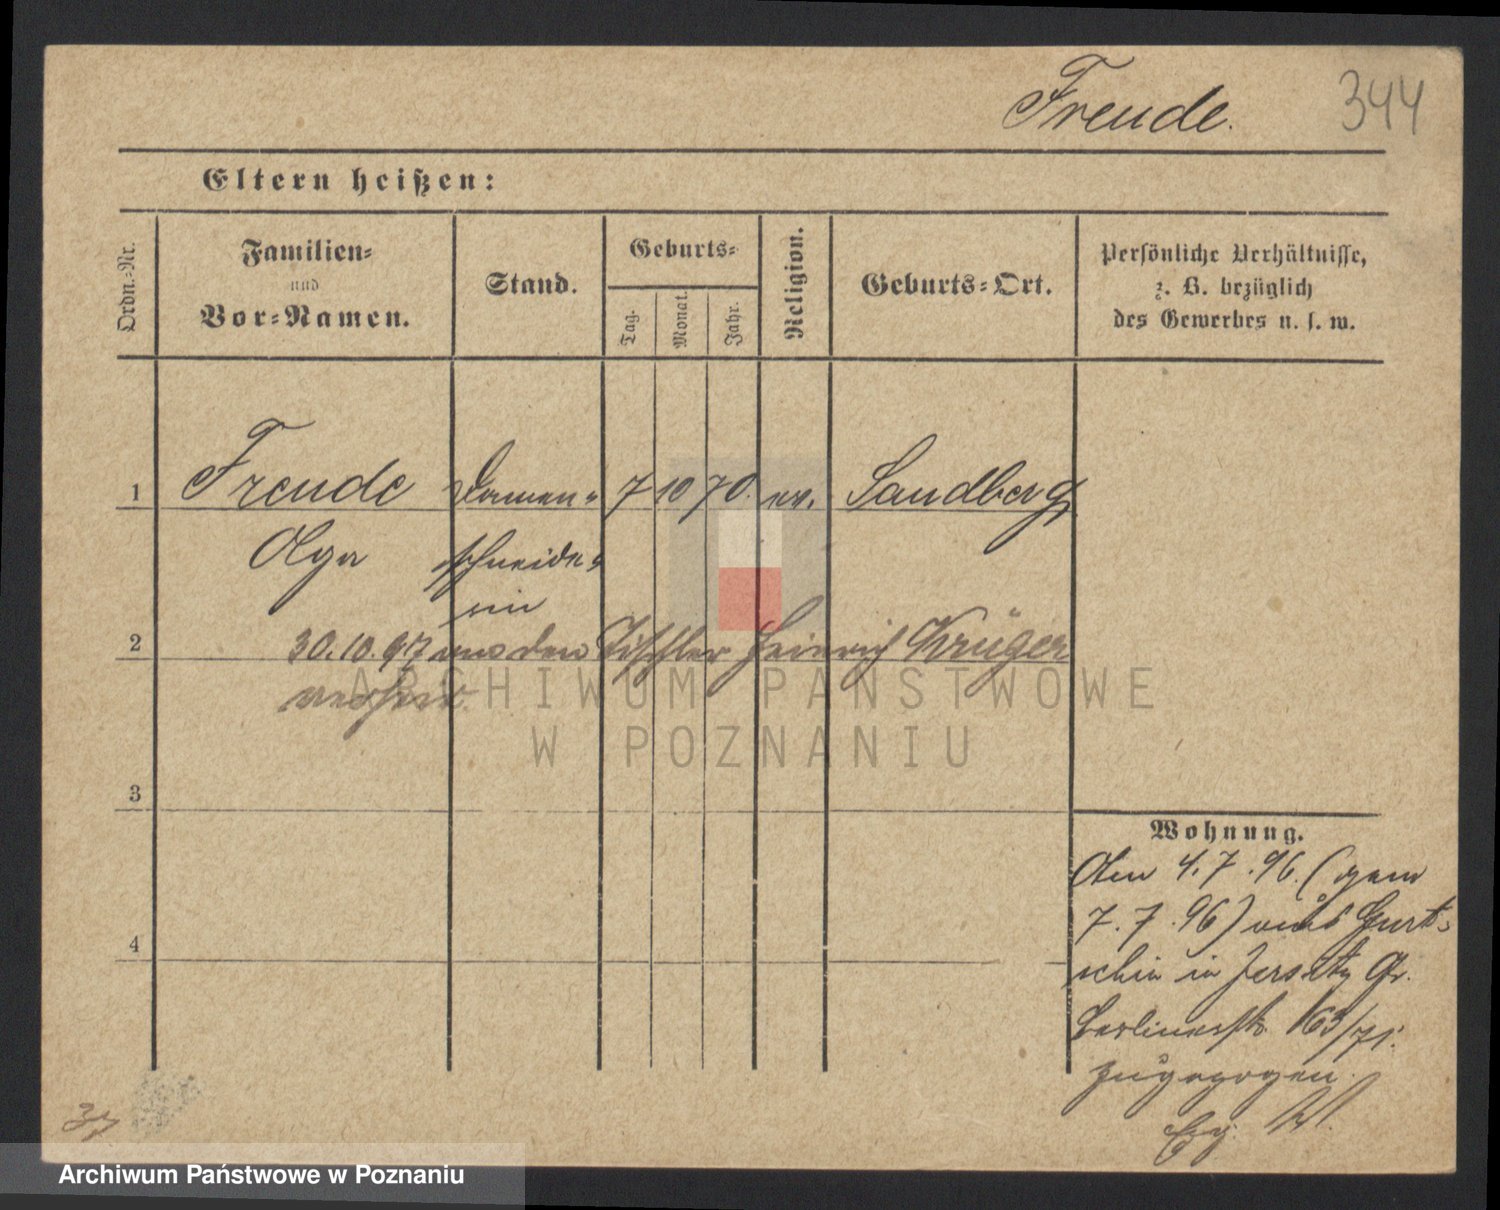 Freude.
344
Eltern heißen:
Ordn.-Nr.
Familien-
und
Vor-Namen.
Stand.
Geburts-
Tag.
Monat.
Jahr.
Religion.
Geburts-Ort.
Persönliche Verhältnisse,
z. B. bezüglich
des Gewerbes u. s. w.
1
Freude Damen- 7 10 70. ev. Sandberg
Olga schneide-
rin
2
30.10.97 den Tischler Heinrich Krüger
verheir.
ARCHIWUM PAŃSTWOWE
W POZNANIU
3
4
Wohnung.
Am 4.7.96. (gem
7.7.96) aus Gurt-
schin in Jersitz Gr.
Berlinerstr. 163/71.
zugezogen
37
Archiwum Państwowe w Poznaniu